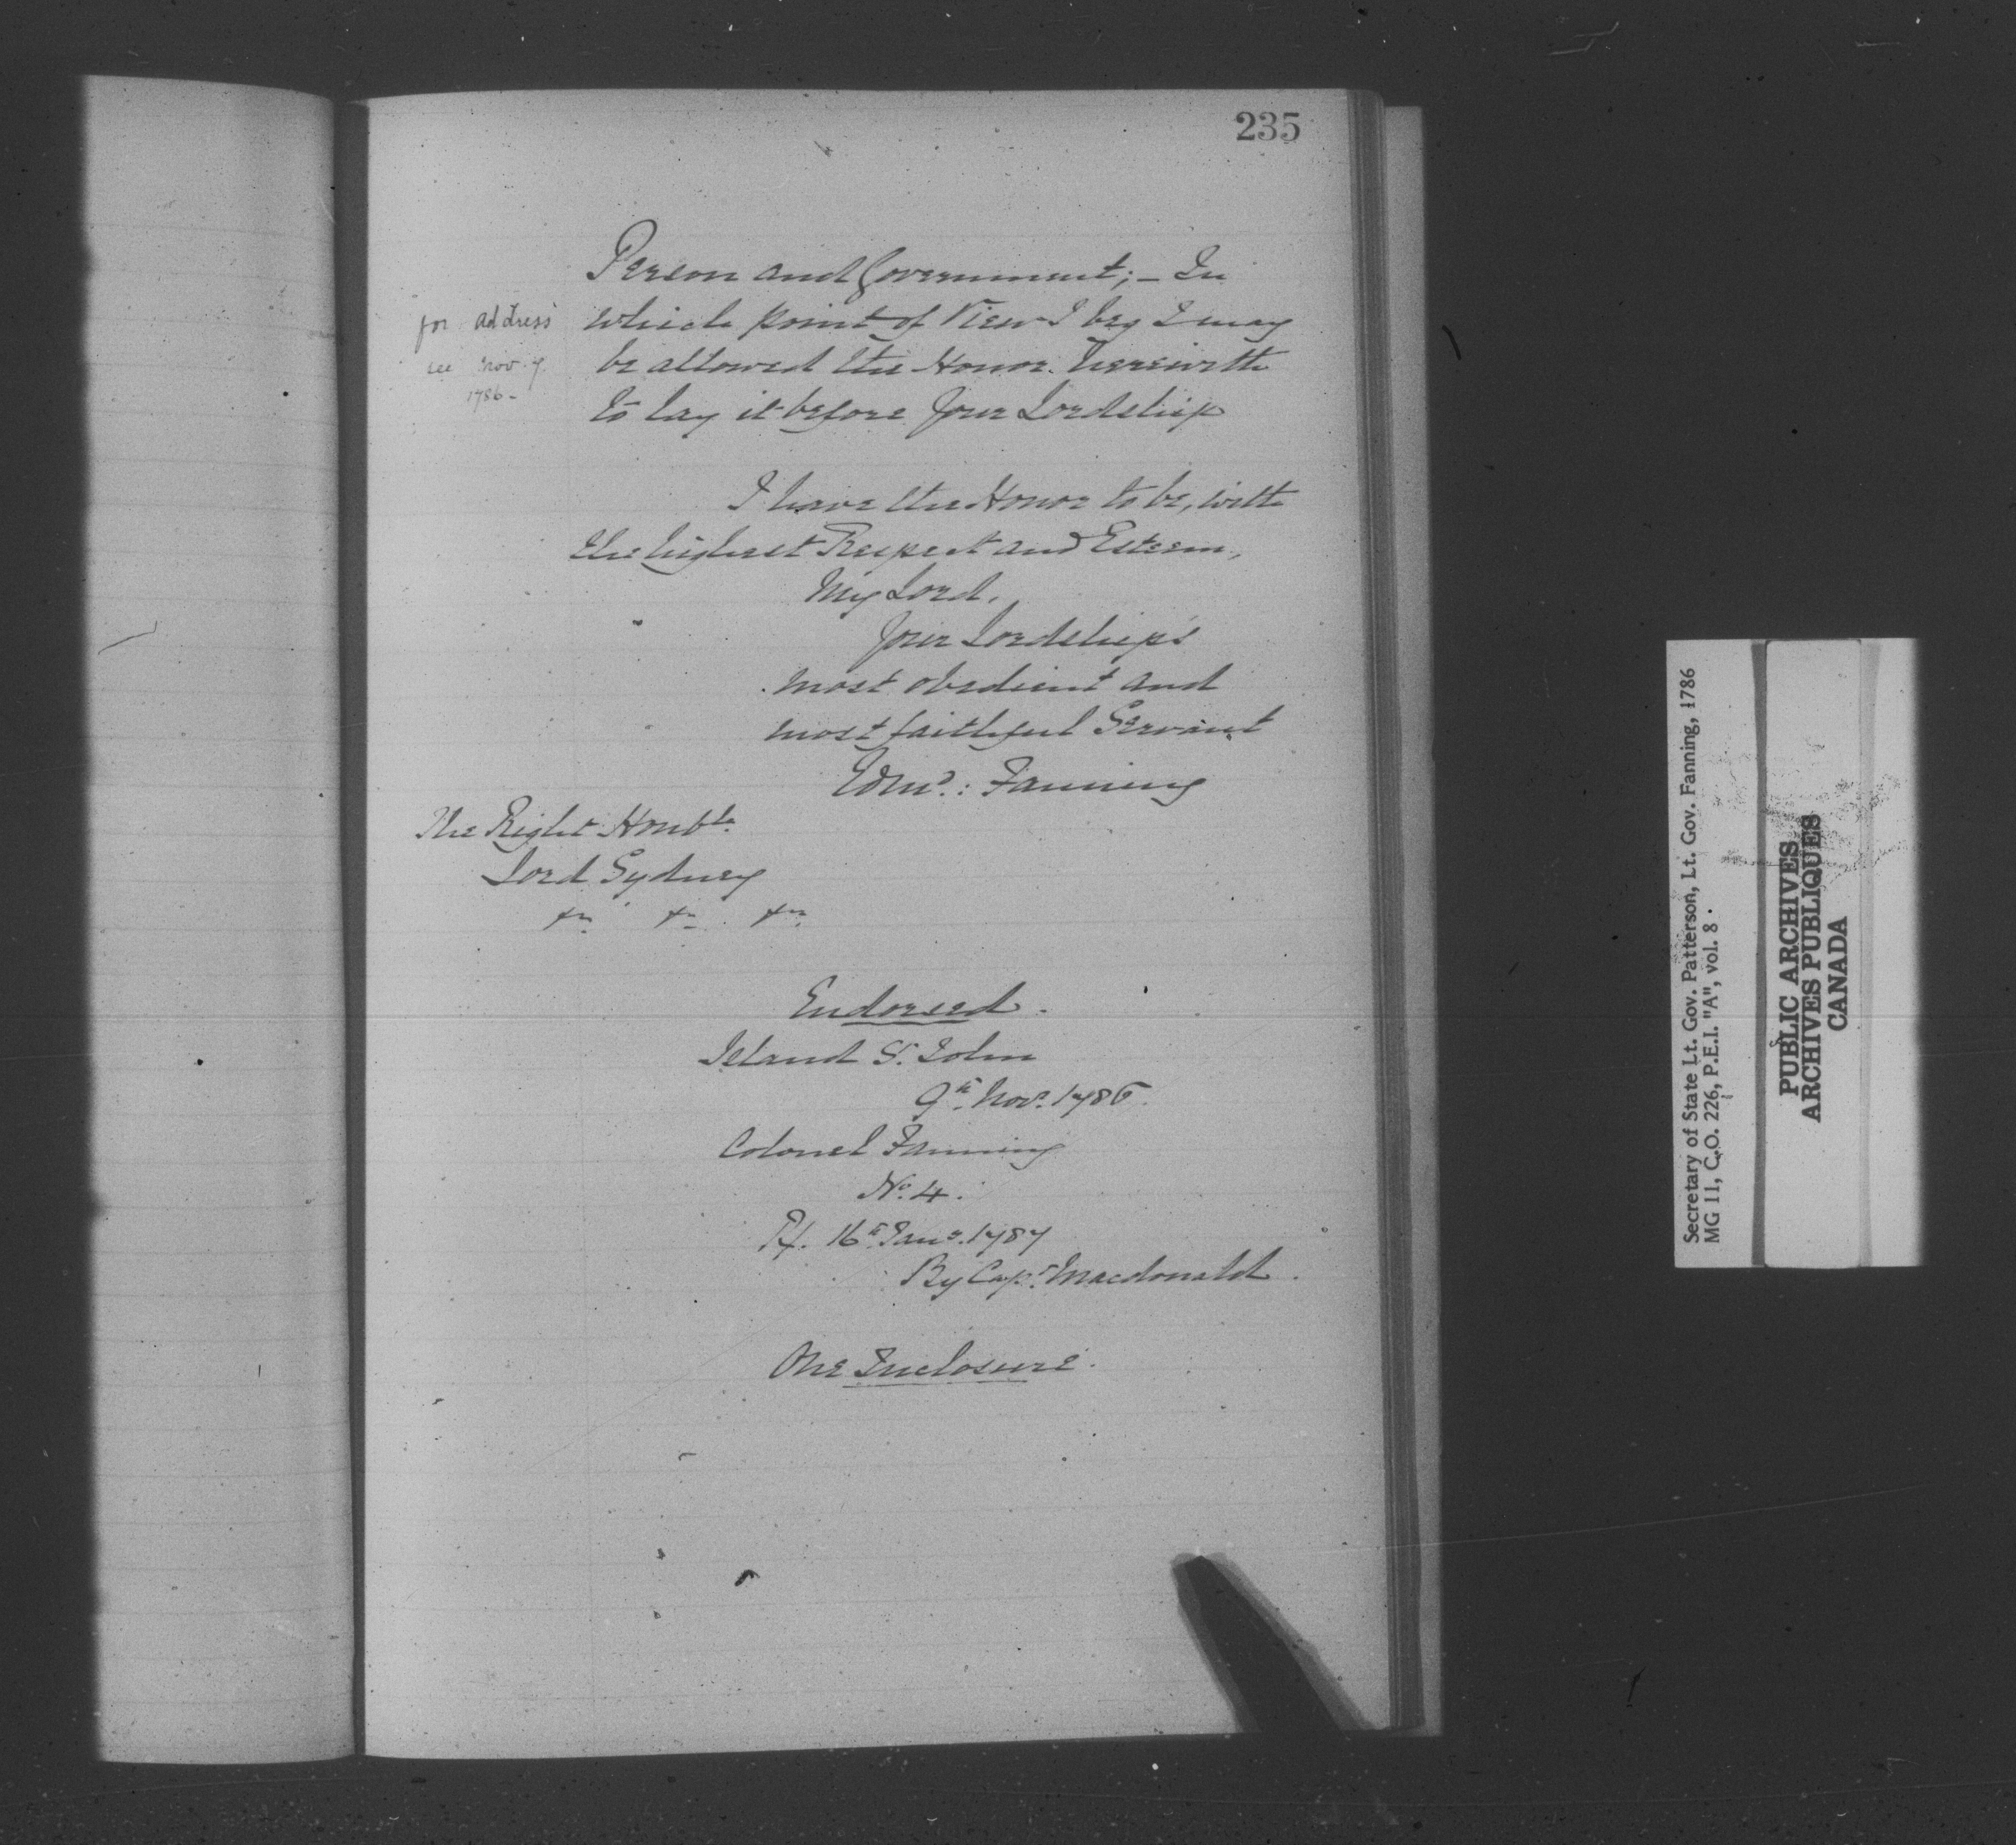 235
Person and Government; – In
which point of View I beg I may
be allowed the Honor herewith
to lay it before Your Lordship
for address
see Nov. 7
1786 –
I have the Honor to be, with
the highest Respect and Esteem,
My Lord,
Your Lordship's
most obedient and
most faithful Servant
Edmd.: Fanning
The Right Honble
Lord Sydney
&c. &c. &c.
Endorsed.
Island St. John
9th Novr. 1786.
Colonel Fanning
No. 4.
Rx. 16th Jany. 1787
By Capt. Macdonald.
One Inclosure.
Secretary of State Lt. Gov. Patterson, Lt. Gov. Fanning, 1786
MG 11, C.O. 226, P.E.I. "A", vol. 8.
PUBLIC ARCHIVES
ARCHIVES PUBLIQUES
CANADA